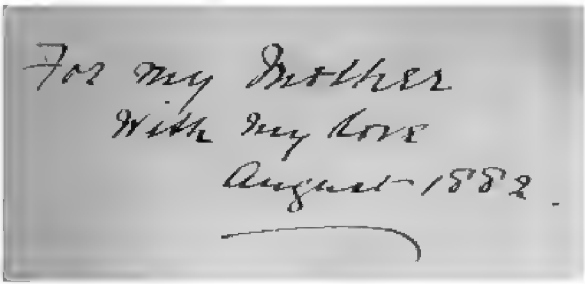 For my Mother
With My Love
August 1882.